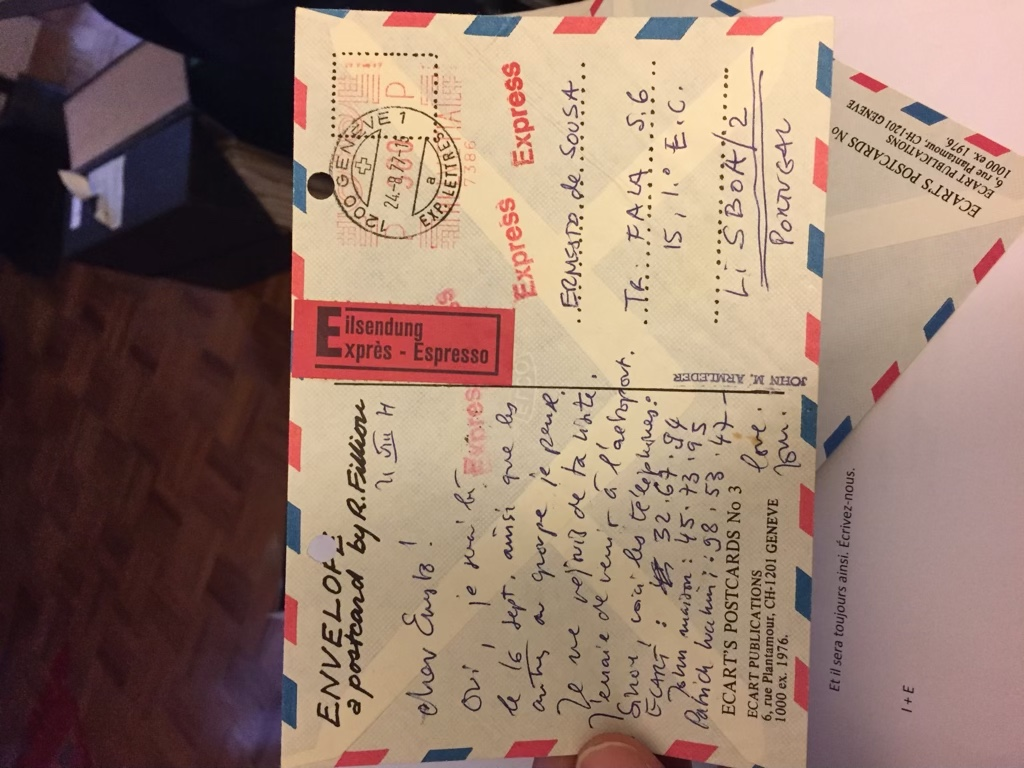 ENVELOPE
a postcard by R. Fillion
Cher Ernesto!
Oui! je serai là
le 16 sept. ainsi que les
autres du groupe je pense.
Je me réjouis de ta visite.
J'essaie de venir à l'aéroport.
Sinon! voici les téléphones:
ECART : 32.67.94
John maison : 45.73.95
Patrick Lucchini : 98.53.47
love.
John.
ECART'S POSTCARDS No 3
ECART PUBLICATIONS
6, rue Plantamour, CH-1201 GENEVE
1000 ex. 1976.
JOHN M. ARMLEDER
Eilsendung
Exprès - Espresso
Express
Express
Express
1200 GENÈVE 1
EXP. LETTRES
a
P
7386
ERNESTO de SOUSA
TR. FALA S. 6
15, 1.º E.C.
LiSBOA/2
PORTUGAL
ECART'S POSTCARDS No
ECART PUBLICATIONS
6, rue Plantamour CH-1201 GENEVE
1000 ex. 1976.
Et il sera toujours ainsi. Écrivez-nous.
I + E